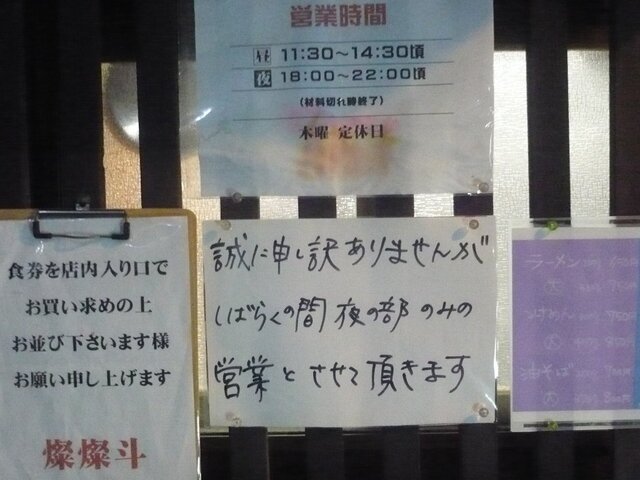 営業時間
昼 11:30～14:30頃
夜 18:00～22:00頃
(材料切れ時終了)
木曜 定休日
食券を店内入り口で
お買い求めの上
お並び下さいます様
お願い申し上げます
燦燦斗
誠に申し訳ありませんが
しばらくの間 夜の部 のみの
営業と させて頂きます
ラーメン
大
つけめん
大
油そば
大